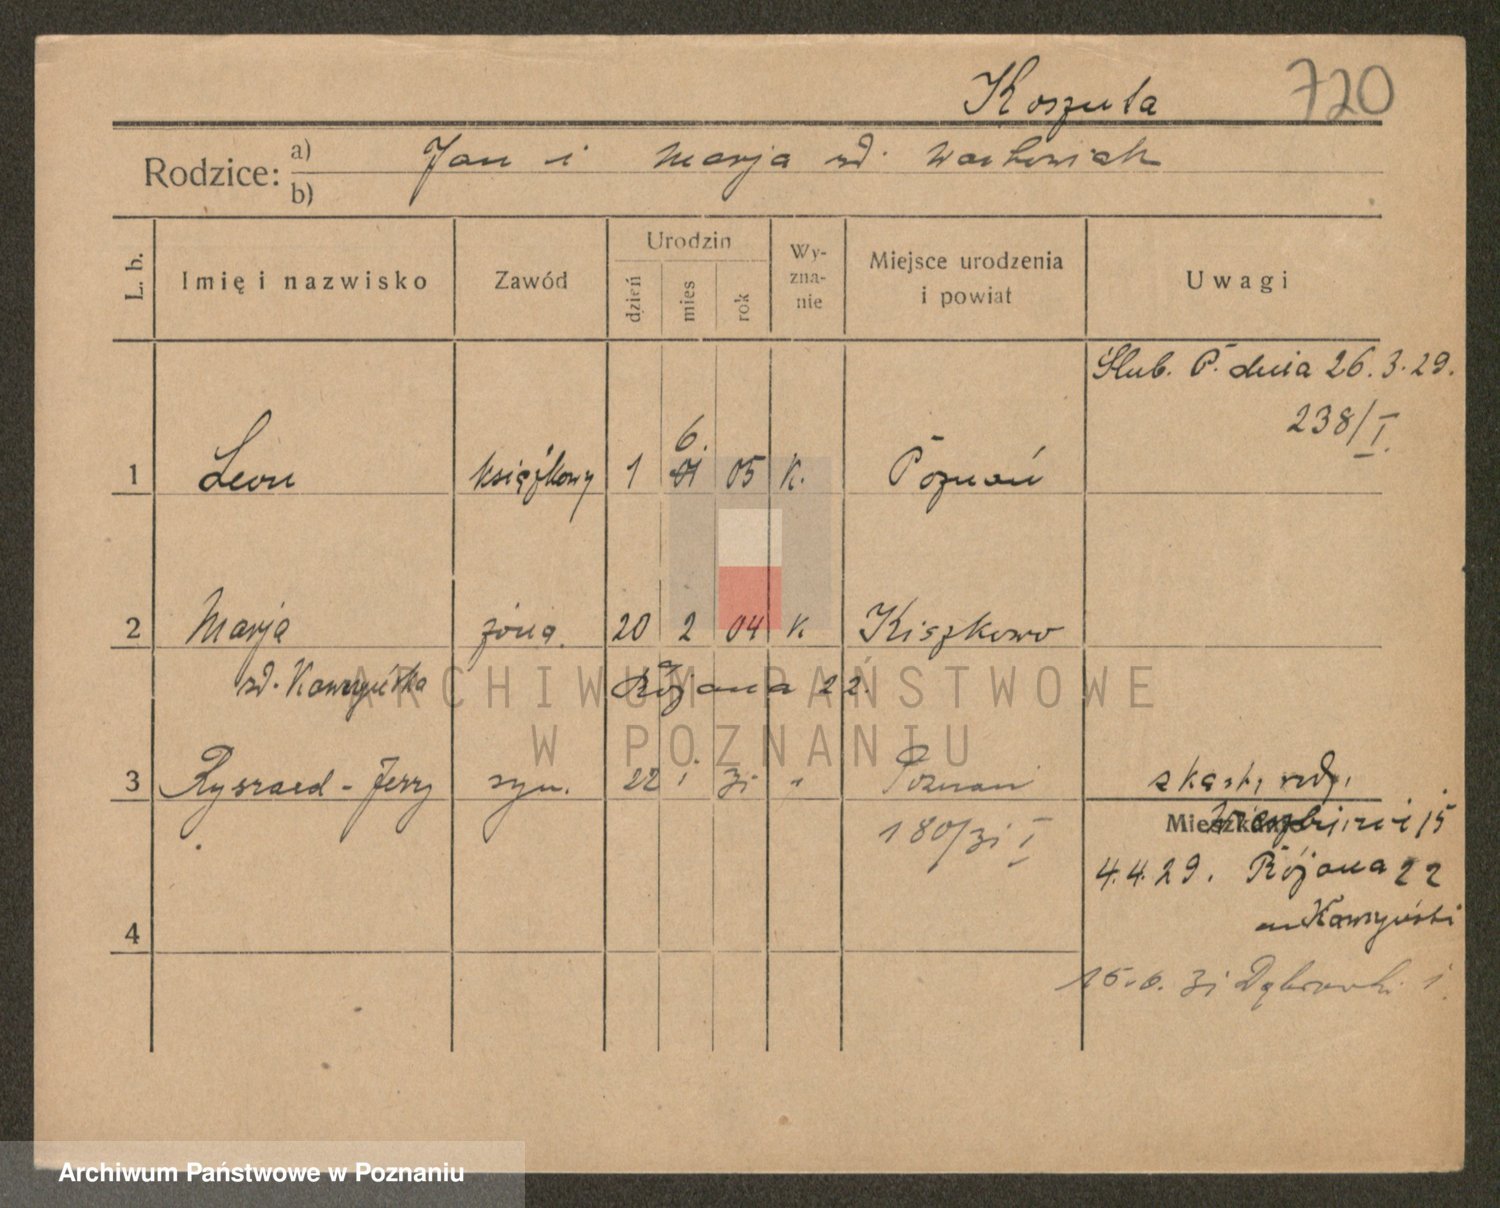 Koszuta 720
Rodzice: a) Jan i Marja zd. Wachowiak
b)
L. b. Imię i nazwisko Zawód Urodzin dzień mies rok Wyznanie Miejsce urodzenia i powiat Uwagi
Ślub. P. dnia 26.3.29.
238/I.
6.
1 Leon książkowy 1 01 05 K. Poznań
2 Marja żona. 20 2 04 K. Kiszkowo
zd. Kawzyńska Różana 22.
3 Ryszard - Jerzy syn. 22 1 31 " Poznań
180/31 I
z kart, rodz.
Mieszkanie 15
4.4.29. Różana 22
m Kawzyński
4
15.6.31 Dąbrowski 1
ARCHIWUM PAŃSTWOWE
W POZNANIU
Archiwum Państwowe w Poznaniu